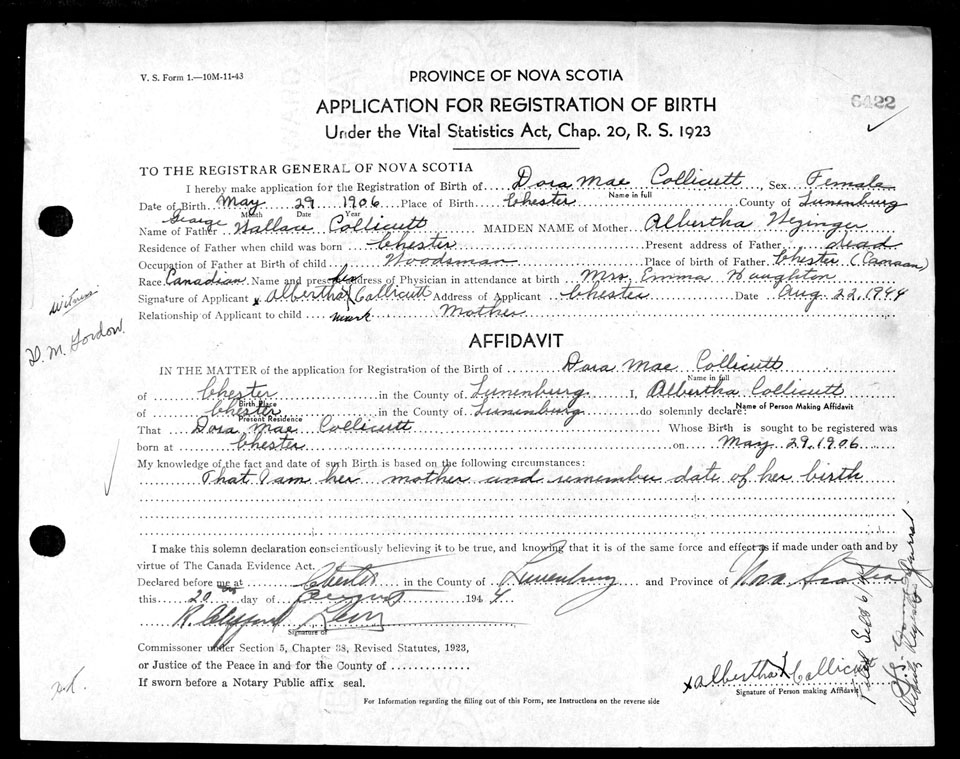 V. S. Form 1.—10M-11-43
PROVINCE OF NOVA SCOTIA
6422
APPLICATION FOR REGISTRATION OF BIRTH
Under the Vital Statistics Act, Chap. 20, R. S. 1923
TO THE REGISTRAR GENERAL OF NOVA SCOTIA
I hereby make application for the Registration of Birth of Dora Mae Collicutt, Sex Female
Name in full
Date of Birth May 29 1906 Place of Birth Chester County of Lunenburg
Month Date Year
Name of Father George Wallace Collicutt MAIDEN NAME of Mother Albertha
Residence of Father when child was born Chester Present address of Father dead
Occupation of Father at Birth of child Woodsman Place of birth of Father Chester
Race Canadian Name and present address of Physician in attendance at birth Mrs. Emma Naughton
Signature of Applicant x Albertha her X mark Collicutt Address of Applicant Chester Date Aug 22, 1944
Relationship of Applicant to child Mother
witness
M. Gordon.
AFFIDAVIT
IN THE MATTER of the application for Registration of the Birth of Dora Mae Collicutt
Name in full
of Chester in the County of Lunenburg I, Albertha Collicutt
Birth Place Name of Person Making Affidavit
of Chester in the County of Lunenburg do solemnly declare:
Present Residence
That Dora Mae Collicutt Whose Birth is sought to be registered was
born at Chester on May 29, 1906
My knowledge of the fact and date of such Birth is based on the following circumstances:
That I am her mother and remember date of her birth
I make this solemn declaration conscientiously believing it to be true, and knowing that it is of the same force and effect as if made under oath and by
virtue of The Canada Evidence Act.
Declared before me at Chester in the County of Lunenburg and Province of Nova Scotia
this 20 day of August 1944
R. Clifford Levy
Signature of
Commissioner under Section 5, Chapter 38, Revised Statutes, 1923,
or Justice of the Peace in and for the County of
If sworn before a Notary Public affix seal.
x Albertha X Collicutt
Signature of Person making Affidavit
For Information regarding the filling out of this Form, see Instructions on the reverse side